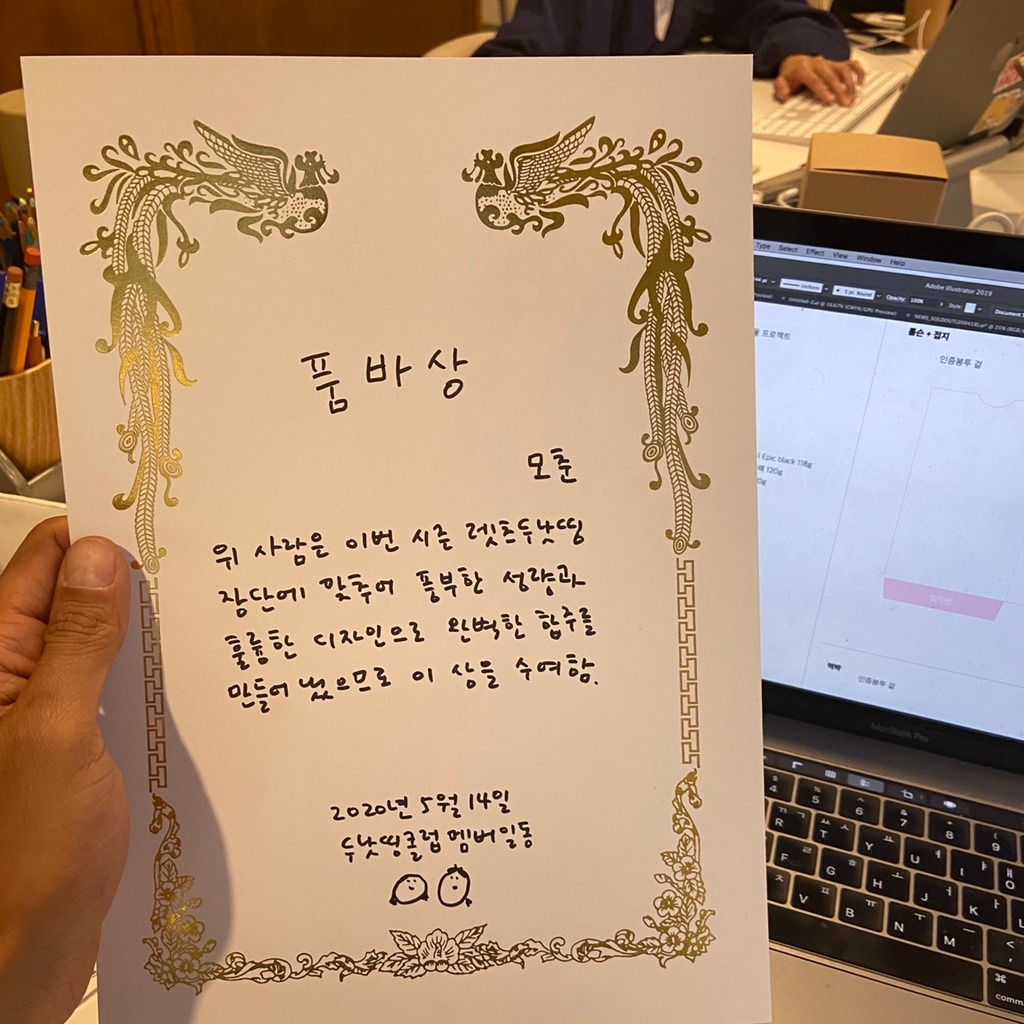 품바상
모춘
위 사람은 이번 시즌 렛츠두낫띵
장단에 맞추어 풍부한 성량과
훌륭한 디자인으로 완벽한 합주를
만들어 냈으므로 이 상을 수여함.
2020년 5월 14일
두낫띵클럽 멤버 일동
Type Select Effect View Window Help
Adobe Illustrator 2019
Uniform
5 pt. Round
Opacity: 100%
Style:
프로젝트
톰슨 + 접지
인증봉투 겉
Epic black 118g
120g
접착면
먹박
인증봉투 겉
MacBook Pro
4 5 6 7 8 9
R T Y U I
F G H J K
V B N M